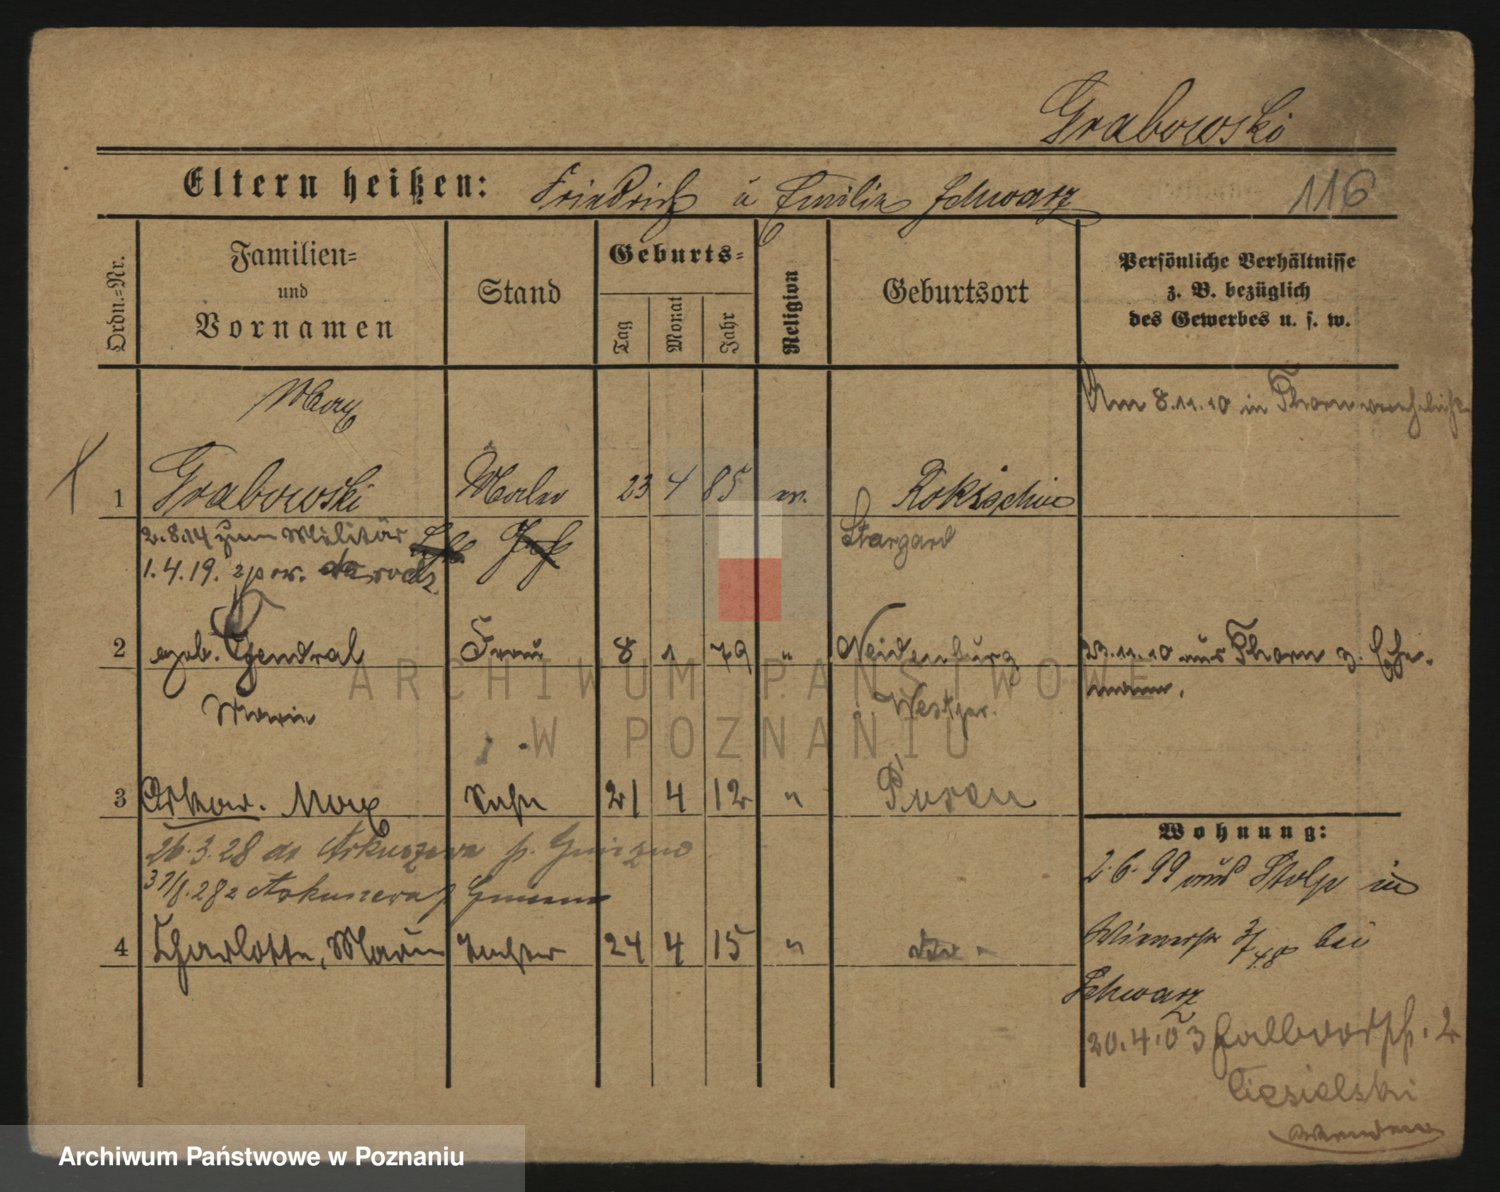 Grabowski
Eltern heißen: Friedrich u Emilie Schwarz 116
Ordn.=Nr.
Familien=
und
Vornamen
Stand
Geburts=
Tag
Monat
Jahr
Religion
Geburtsort
Persönliche Verhältnisse
z. B. bezüglich
des Gewerbes u. s. w.
Max
Am 8.11.10 in Thorn verehelicht
1 Grabowski Maler 23 4 85
2.8.14 zum Militär
Stargard
1.4.19.
2 geb. Gendral Frau 8 1 79 " Neidenburg 23.11.10 aus Thorn z. Ehe-
mann.
Marie
Westpr.
3 Oskar. Max Sohn 21 4 12 " Posen
26.3.28 do
4 Charlotte, Marie Tochter 24 4 15 "
Wohnung:
2.6.99 aus Stolp in
bei
Schwarz
20.4.03 Halbdorfstr. 2
Ciesielski
ARCHIWUM PAŃSTWOWE
W POZNANIU
Archiwum Państwowe w Poznaniu